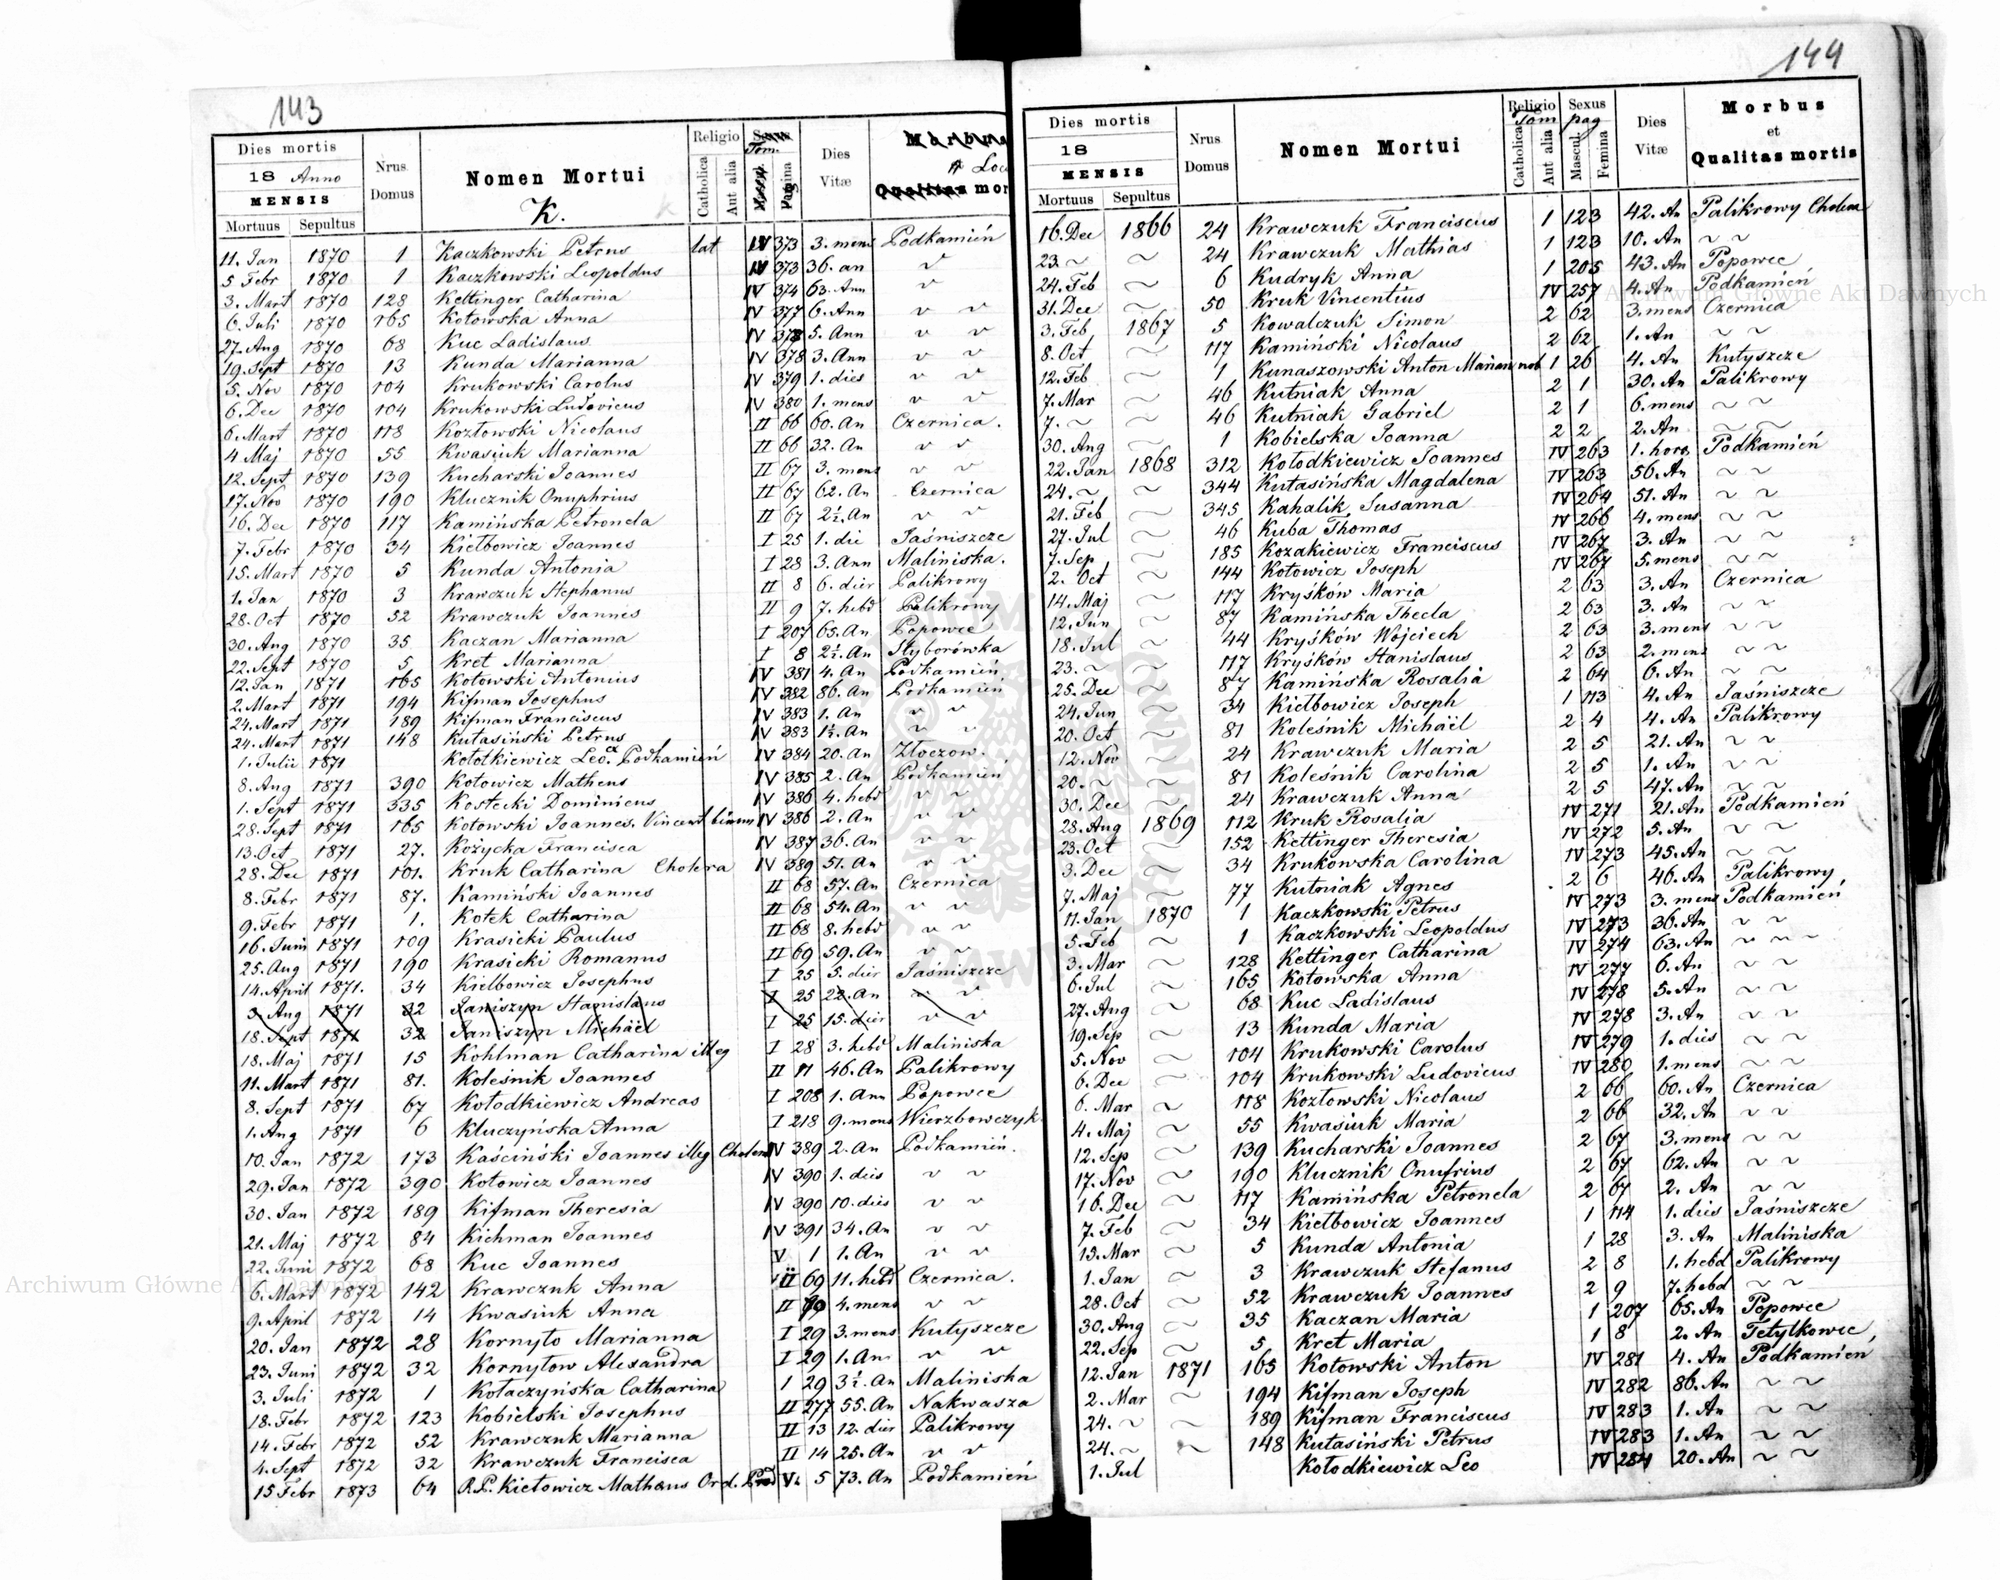 143
Dies mortis
18 Anno
MENSIS
Mortuus Sepultus
Nrus Domus
Nomen Mortui
K.
Religio
Catholica
Aut alia
Tom.
Pagina
Dies Vitæ
Loc
Qualitas mor
11. Jan 1870 1 Kaczkowski Petrus lat IV 373 3. mens Podkamień
5 Febr 1870 1 Kaczkowski Leopoldus IV 373 36. an v
3. Mart 1870 128 Kettinger Catharina IV 374 63. Ann v
6. Juli 1870 165 Kotowska Anna IV 377 6. Ann v v
27. Aug 1870 68 Kuc Ladislaus IV 378 5. Ann v v
19. Sept 1870 13 Kunda Marianna IV 378 3. Ann v v
5. Nov 1870 104 Krukowski Carolus IV 379 1. dies v v
6. Dec 1870 104 Krukowski Ludovicus IV 380 1. mens v v
6. Mart 1870 118 Kozłowski Nicolaus II 66 60. An Czernica.
4 Maj 1870 55 Kwasiuk Marianna II 66 32. An v v
12. Sept 1870 139 Kucharski Joannes II 67 3. mens v v
17. Nov 1870 190 Klucznik Onuphrius II 67 62. An Czernica
16. Dec 1870 117 Kamińska Petronela II 67 2½. An v v
7. Febr 1870 34 Kiełbowicz Joannes I 25 1. die Jaśniszcze
15. Mart 1870 5 Kunda Antonia I 28 3. Ann Maliniska.
1. Jan 1870 3 Krawczuk Stephanus II 8 6. dier Palikrowy
28. Oct 1870 52 Krawczuk Joannes II 9 7. hebd Palikrowy
30. Aug 1870 35 Kaczan Marianna I 207 65. An Popowce
22. Sept 1870 5 Kret Marianna I 8 2½. An Styborówka
12. Jan 1871 165 Kotowski Antonius IV 381 4. An Podkamień
2. Mart 1871 194 Kifman Josephus IV 382 86. An Podkamień
24. Mart 1871 189 Kifman Franciscus IV 383 1. An v v
24. Mart 1871 148 Kutasiński Petrus IV 383 1½. An v v
1. Julii 1871 Kołotkiewicz Leo. ex Podkamień IV 384 20. An Złoczow.
8. Aug 1871 390 Kotowicz Matheus IV 385 2. An Podkamień
1. Sept 1871 335 Kostecki Dominicus IV 386 4. hebd v v
28. Sept 1871 165 Kotowski Joannes. Vincent IV 386 2. An v v
13. Oct 1871 27. Kożycka Francisca IV 387 36. An v v
28. Dec 1871 101. Kruk Catharina Cholera IV 389 51. An v v
8. Febr 1871 87. Kamiński Joannes II 68 57. An Czernica
9. Febr 1871 1. Kotek Catharina II 68 54. An v v
16. Juni 1871 109 Krasicki Paulus II 68 8. hebd v v
25. Aug 1871 190 Krasicki Romanus II 69 59. An v v
14. April 1871. 34 Kiełbowicz Josephus I 25 5. dier Jaśniszcze
3. Aug 1871 32 Janiszyn Stanislaus I 25 22. An v v
18. Sept 1871 32 Janiszyn Michael I 25 15. dier v v
18. Maj 1871 15 Kohlman Catharina illeg I 28 3. hebd Maliniska
11. Mart 1871 81. Koleśnik Joannes II 11 46. An Palikrowy
8. Sept 1871 67 Kołodkiewicz Andreas I 208 1. Ann Popowce
1. Aug 1871 6 Kluczyńska Anna I 218 9. mens Wierzbowczyk
10. Jan 1872 173 Kaściński Joannes illeg Cholera IV 389 2. An Podkamień.
29. Jan 1872 390 Kotowicz Joannes IV 390 1. dies v v
30. Jan 1872 189 Kifman Theresia IV 390 10. dies v v
21. Maj 1872 84 Kichman Joannes IV 391 34. An v v
22. Juni 1872 68 Kuc Joannes V 1 1. An v v
6. Mart 1872 142 Krawczuk Anna II 69 11. hebd Czernica.
9. April 1872 14 Kwasiuk Anna II 70 4. mens v v
20. Jan 1872 28 Kornyło Marianna I 29 3. mens Kutyszcze
23. Juni 1872 32 Kornyłow Alexandra I 29 1. An v v
3. Juli 1872 1 Kołaczyńska Catharina I 29 3½. An Maliniska
18. Febr 1872 123 Kobielski Josephus II 277 55. An Nakwasza
14. Febr 1872 52 Krawczuk Marianna II 13 12. dier Palikrowy
4. Sept 1872 32 Krawczuk Francisca II 14 25. An v v
15 Febr 1873 64 R.P. Kiełowicz Mathæus Ord. Præd V. 5 73. An Podkamień
144
Dies mortis
18
MENSIS
Mortuus Sepultus
Nrus Domus
Nomen Mortui
Religio Sexus
Tom pag
Catholica
Aut alia
Mascul.
Femina
Dies Vitæ
Morbus
et
Qualitas mortis
16. Dec 1866 24 Krawczuk Franciscus 1 123 42. An Palikrowy Cholera
23. ~ ~ 24 Krawczuk Mathias 1 123 10. An ~ ~
24. Feb ~ 6 Kudryk Anna 1 205 43. An Popowce
31. Dec ~ 50 Kruk Vincentius IV 257 4. An Podkamień
3. Feb 1867 5 Kowalczuk Simon 2 62 3. mens Czernica
8. Oct ~ 117 Kamiński Nicolaus 2 62 1. An ~ ~
12. Feb ~ 1 Kunaszowski Anton Marian nob 1 26 4. An Kutyszcze
7. Mar ~ 46 Kutniak Anna 2 1 30. An Palikrowy
7. ~ ~ 46 Kutniak Gabriel 2 1 6. mens ~ ~
30. Aug ~ 1 Kobielska Joanna 2 2 2. An ~ ~
22. Jan 1868 312 Kołodkiewicz Joannes IV 263 1. hora Podkamień
24. ~ ~ 344 Kutasińska Magdalena IV 263 56. An ~ ~
21. Feb ~ 345 Kahalik Susanna IV 264 51. An ~ ~
27. Jul ~ 46 Kuba Thomas IV 266 4. mens ~ ~
7. Sep ~ 185 Kozakiewicz Franciscus IV 267 3. An ~ ~
2. Oct ~ 144 Kotowicz Joseph IV 267 5. mens ~ ~
14. Maj ~ 117 Kryśków Maria 2 63 3. An Czernica
12. Jun ~ 87 Kamińska Thecla 2 63 3. An ~ ~
18. Jul ~ 44 Kryśków Wojciech 2 63 3. mens ~ ~
23. ~ ~ 117 Kryśków Stanislaus 2 63 2. mens ~ ~
25. Dec ~ 87 Kamińska Rosalia 2 64 6. An ~ ~
24. Jun ~ 34 Kiełbowicz Joseph 1 113 4. An Jaśniszcze
20. Oct ~ 81 Koleśnik Michäel 2 4 4. An Palikrowy
12. Nov ~ 24 Krawczuk Maria 2 5 21. An ~ ~
20. ~ ~ 81 Koleśnik Carolina 2 5 1. An ~ ~
30. Dec ~ 24 Krawczuk Anna 2 5 47. An ~ ~
28. Aug 1869 112 Kruk Rosalia IV 271 21. An Podkamień
23. Oct ~ 152 Kettinger Theresia IV 272 5. An ~ ~
3. Dec ~ 34 Krukowska Carolina IV 273 45. An ~ ~
7. Maj ~ 77 Kutniak Agnes 2 6 46. An Palikrowy
11. Jan 1870 1 Kaczkowski Petrus IV 273 3. mens Podkamień
5. Feb ~ 1 Kaczkowski Leopoldus IV 273 36. An ~ ~
3. Mar ~ 128 Kettinger Catharina IV 274 63. An ~ ~ ~
6. Jul ~ 165 Kotowska Anna IV 277 6. An ~ ~
27. Aug ~ 68 Kuc Ladislaus IV 278 5. An ~ ~
19. Sep ~ 13 Kunda Maria IV 278 3. An ~ ~
5. Nov ~ 104 Krukowski Carolus IV 279 1. dies ~ ~
6. Dec ~ 104 Krukowski Ludovicus IV 280 1. mens ~ ~
6. Mar ~ 118 Kozłowski Nicolaus 2 66 60. An Czernica
4. Maj ~ 55 Kwasiuk Maria 2 66 32. An ~ ~
12. Sep ~ 139 Kucharski Joannes 2 67 3. mens ~ ~
17. Nov ~ 190 Klucznik Onufrius 2 67 62. An ~ ~
16. Dec ~ 117 Kamińska Petronela 2 67 2. An ~ ~
7. Feb ~ 34 Kiełbowicz Joannes 1 114 1. dies Jaśniszcze
13. Mar ~ 5 Kunda Antonia 1 28 3. An Maliniska
1. Jan ~ 3 Krawczuk Stefanus 2 8 1. hebd Palikrowy
28. Oct ~ 52 Krawczuk Joannes 2 9 7. hebd ~ ~
30. Aug ~ 35 Kaczan Maria 1 207 65. An Popowce
22. Sep ~ 5 Kret Maria 1 8 2. An Tetylkowce
12. Jan 1871 165 Kotowski Anton IV 281 4. An Podkamien
2. Mar ~ 194 Kifman Joseph IV 282 86. An ~ ~
24. ~ ~ 189 Kifman Franciscus IV 283 1. An ~ ~
24. ~ ~ 148 Kutasiński Petrus IV 283 1. An ~ ~
1. Jul Kołodkiewicz Leo IV 284 20. An ~ ~
Archiwum Główne Akt Dawnych
Archiwum Główne Akt Dawnych